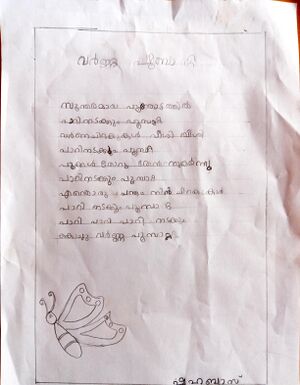 വർണ്ണ പൂമ്പാറ്റ
സുന്ദരമായ പൂന്തോട്ടത്തിൽ
പാറിനടക്കും പൂമ്പാറ്റ
വർണ്ണചിറകുകൾ വീശി വീശി
പാറിനടക്കും പൂമ്പാറ്റ
പൂക്കൾ തോറും തേൻനുകർന്നു
പാറിനടക്കും പൂമ്പാറ്റ
എന്തൊരു ചന്തം നിൻ ചിറകുകൾ
പാറി നടക്കും പൂമ്പാറ്റ
പാറി പാറി പാറി നടക്കും
കൊച്ചു വർണ്ണ പൂമ്പാറ്റ
ഷഹബാസ്